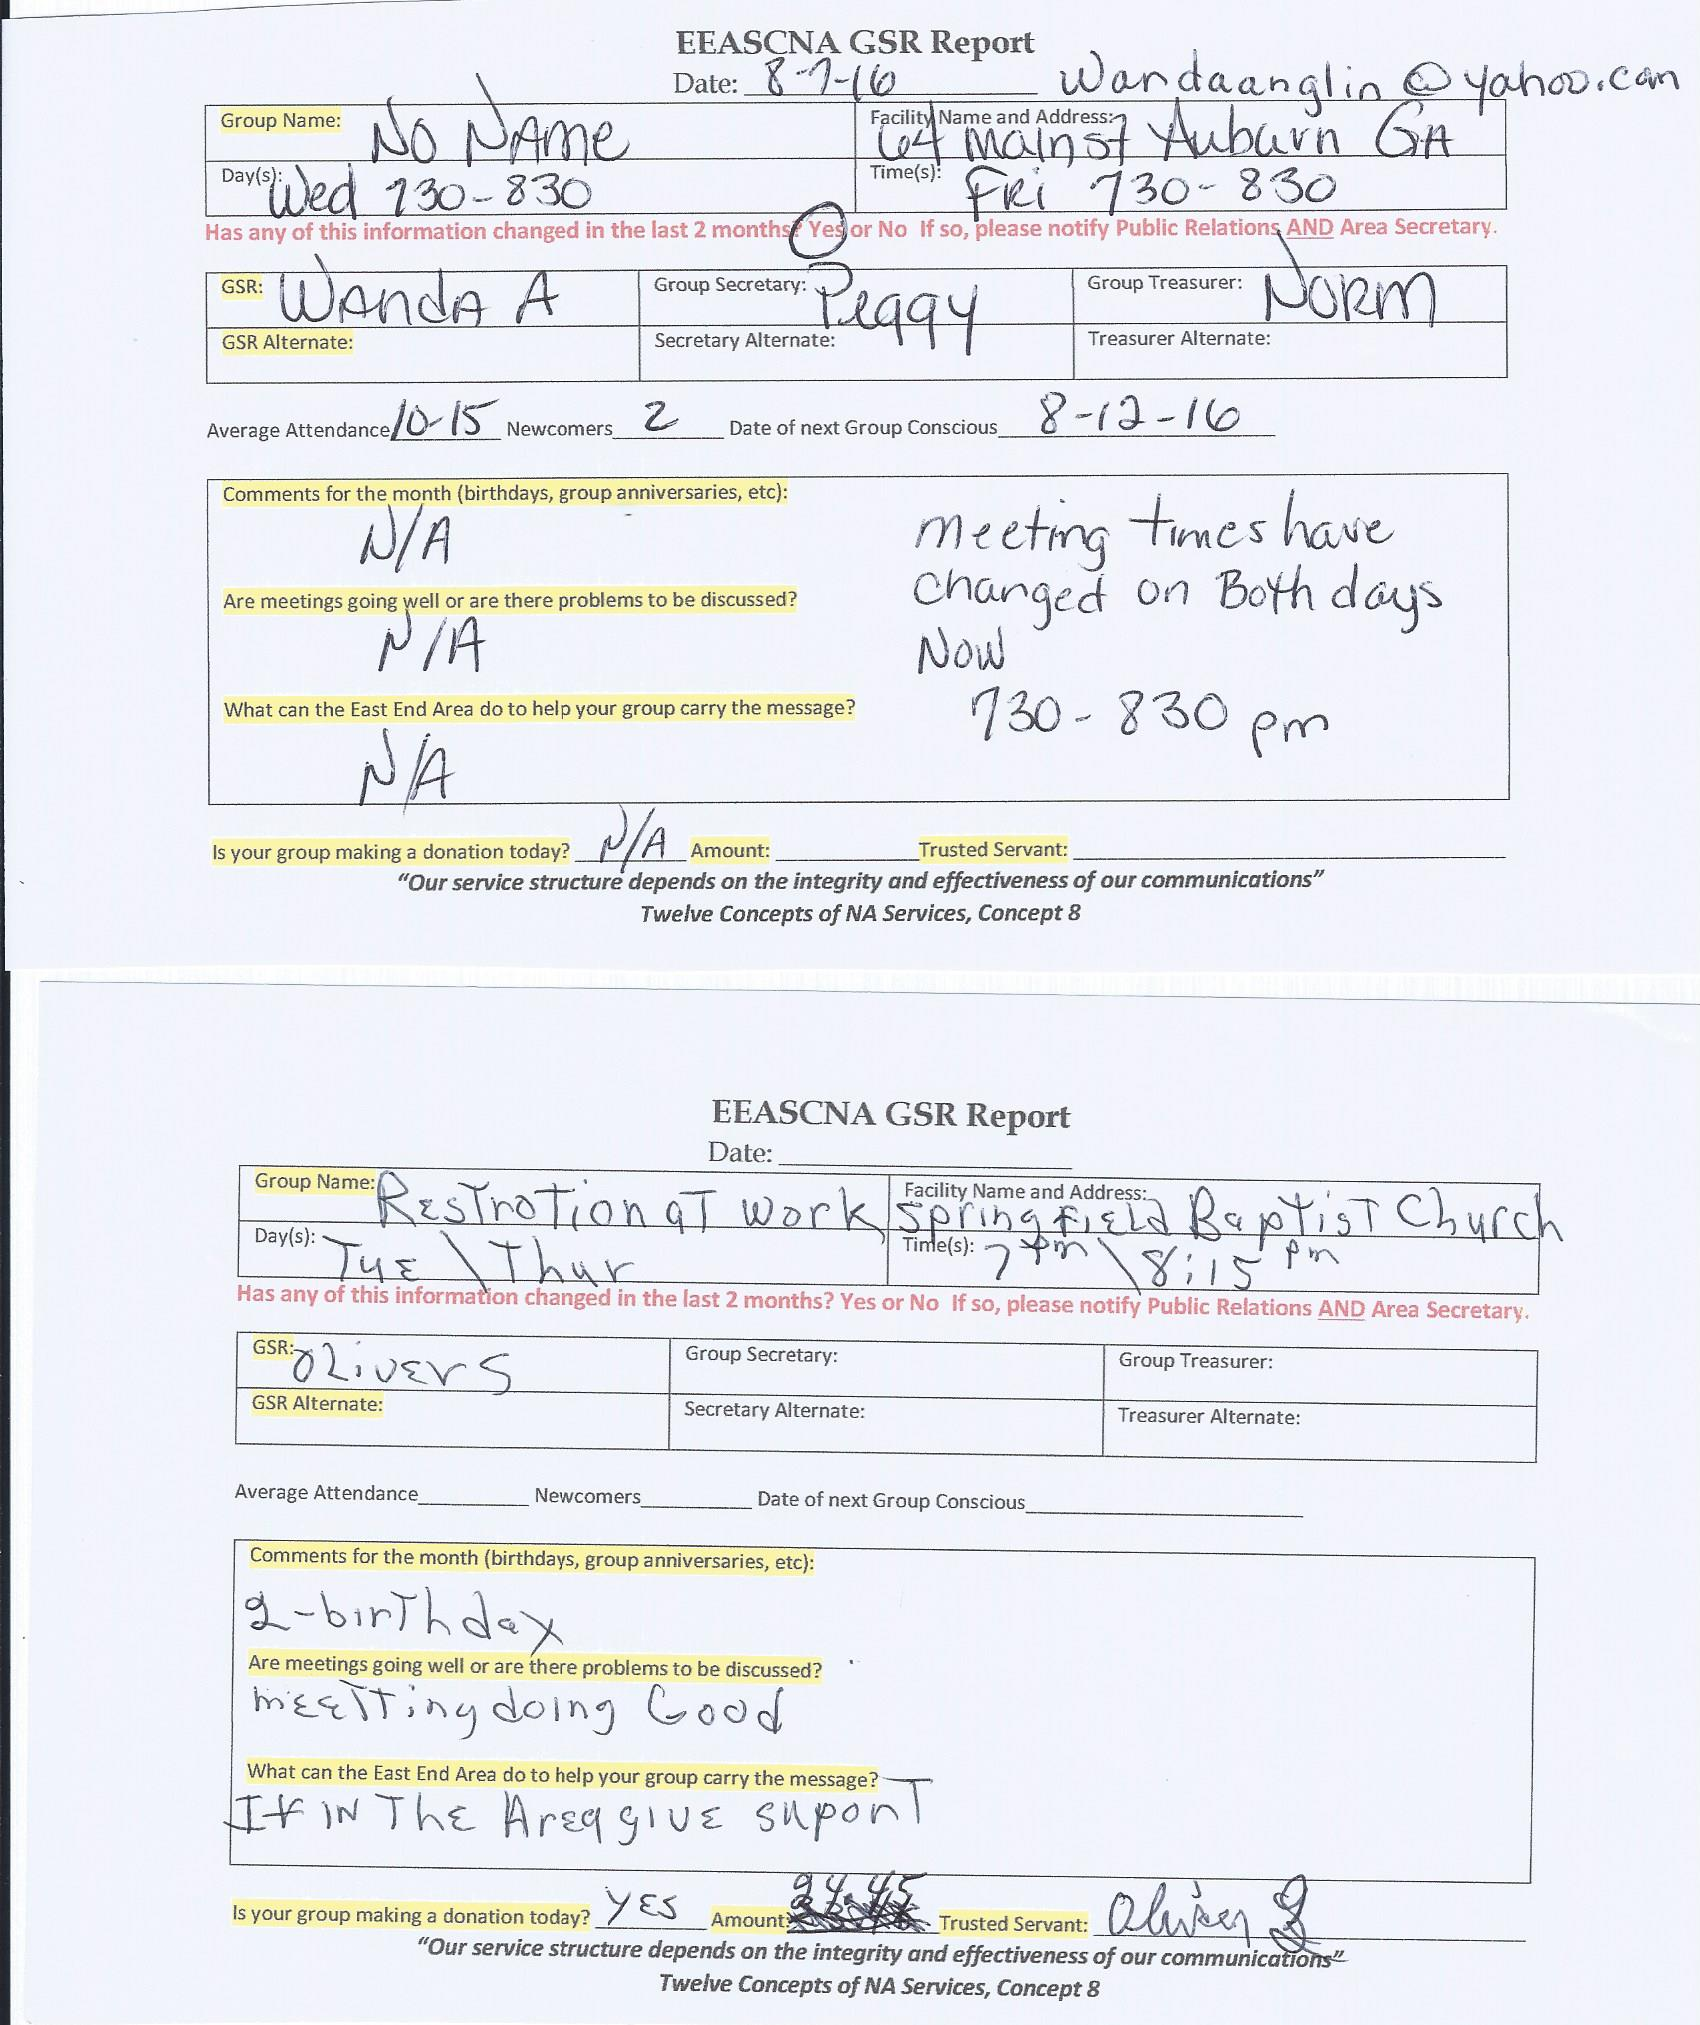 EEASCNA GSR Report
Date: 8-7-16 Wandaanglin@yahoo.com
Group Name: No NAme Facility Name and Address: 64 Main st Auburn GA
Day(s): Wed 730-830 Time(s): FRi 730-830
Has any of this information changed in the last 2 months? Yes or No If so, please notify Public Relations AND Area Secretary.
GSR: WAndA A Group Secretary: Peggy Group Treasurer: NoRm
GSR Alternate: Secretary Alternate: Treasurer Alternate:
Average Attendance 10-15 Newcomers 2 Date of next Group Conscious 8-12-16
Comments for the month (birthdays, group anniversaries, etc):
N/A meeting times have
changed on Both days
Are meetings going well or are there problems to be discussed?
N/A Now
What can the East End Area do to help your group carry the message?
730-830 pm
N/A
Is your group making a donation today? N/A Amount: Trusted Servant:
“Our service structure depends on the integrity and effectiveness of our communications”
Twelve Concepts of NA Services, Concept 8
EEASCNA GSR Report
Date:
Group Name: RESTroTion aT Work Facility Name and Address: SpringfiEld BaptisT Church
Day(s): TuE \ Thur Time(s): 7 pm \ 8:15 pm
Has any of this information changed in the last 2 months? Yes or No If so, please notify Public Relations AND Area Secretary.
GSR: OlivEr S Group Secretary: Group Treasurer:
GSR Alternate: Secretary Alternate: Treasurer Alternate:
Average Attendance Newcomers Date of next Group Conscious
Comments for the month (birthdays, group anniversaries, etc):
2-birThday
Are meetings going well or are there problems to be discussed?
mEETTing doing Good
What can the East End Area do to help your group carry the message?
If IN ThE ArEa giVE suporT
Is your group making a donation today? YES Amount: 24.45 Trusted Servant: Oliver S
“Our service structure depends on the integrity and effectiveness of our communications”
Twelve Concepts of NA Services, Concept 8